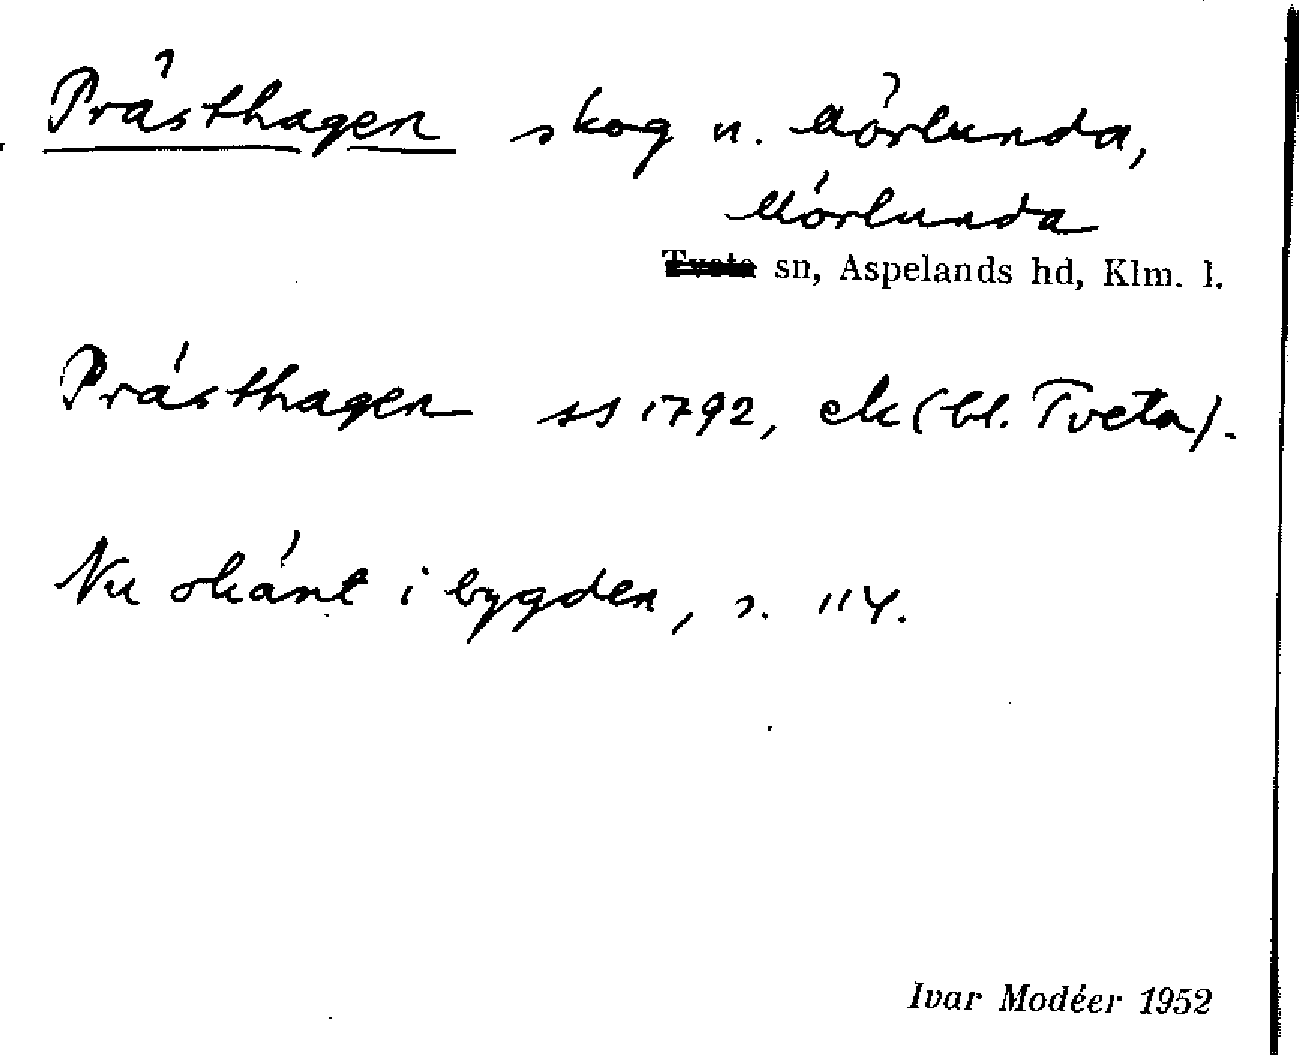 Prästhagen skog n. Mörlunda,
Mörlunda
Tveta sn, Aspelands hd, Klm. l.
Prästhagen ss 1792, ek (bl. Tveta).
Nu okänt i bygden, s. 114.
Ivar Modéer 1952